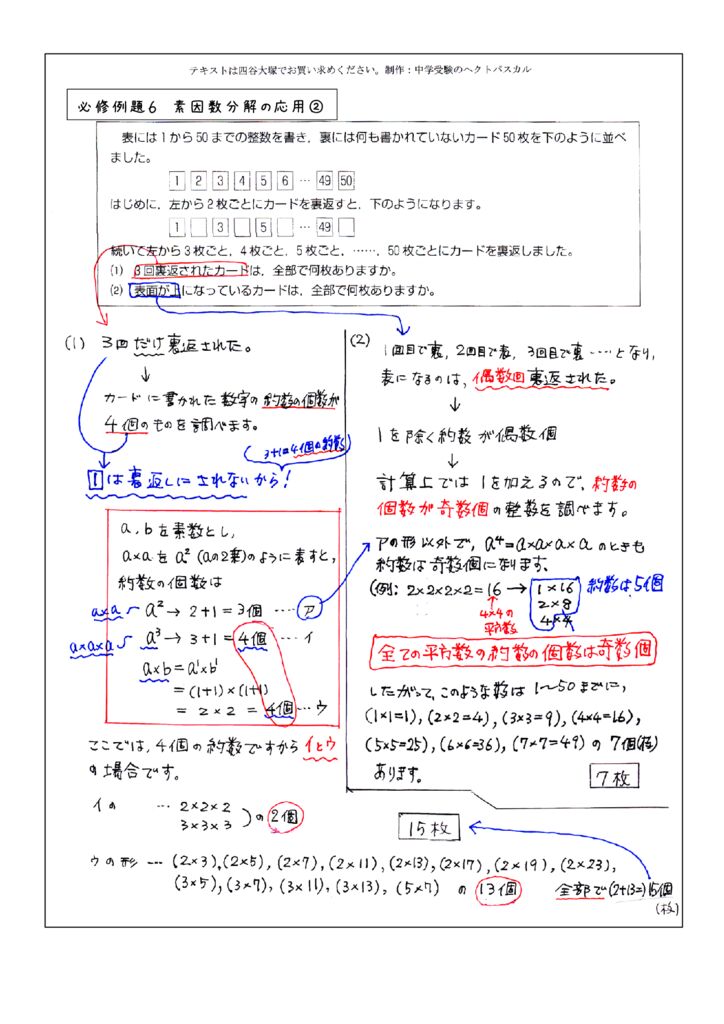 テキストは四谷大塚でお買い求めください。制作：中学受験のヘクトパスカル
必修例題６　素因数分解の応用②
表には１から50までの整数を書き，裏には何も書かれていないカード50枚を下のように並べ
ました。
1 2 3 4 5 6 … 49 50
はじめに，左から２枚ごとにカードを裏返すと，下のようになります。
1 3 5 … 49
続いて左から３枚ごと，４枚ごと，５枚ごと，……，50枚ごとにカードを裏返しました。
(1) ３回裏返されたカードは，全部で何枚ありますか。
(2) 表面が上になっているカードは，全部で何枚ありますか。
(1) 3回だけ裏返された。
↓
カードに書かれた数字の約数の個数が
4個のものを調べます。
(3+1=4個の約数)
1は裏返しにされないから!
a，bを素数とし，
a×aをa²(aの2乗)のように表すと，
約数の個数は
a×a a²→2+1=3個 ‥‥ ア
a×a×a a³→3+1=4個 ‥‥ イ
a×b=a¹×b¹
=(1+1)×(1+1)
=2×2=4個 … ウ
ここでは，4個の約数ですからイとウ
の場合です。
イの … 2×2×2
3×3×3 )の2個
(2) 1回目で裏，2回目で表，3回目で裏‥‥となり，
表になるのは，偶数回裏返された。
↓
1を除く約数が偶数個
↓
計算上では1を加えるので，約数の
個数が奇数個の整数を調べます。
アの形以外で，a⁴=a×a×a×aのときも
約数は奇数個になります。
(例：2×2×2×2=16 → 1×16 約数は5個
2×8
4×4
4×4の
平方数
全ての平方数の約数の個数は奇数個
したがって，このような数は1〜50までに，
(1×1=1)，(2×2=4)，(3×3=9)，(4×4=16)，
(5×5=25)，(6×6=36)，(7×7=49)の7個(枚)
あります。
7枚
15枚
ウの形 … (2×3)，(2×5)，(2×7)，(2×11)，(2×13)，(2×17)，(2×19)，(2×23)，
(3×5)，(3×7)，(3×11)，(3×13)，(5×7) の 13個 全部で(2+13=)15個
(枚)